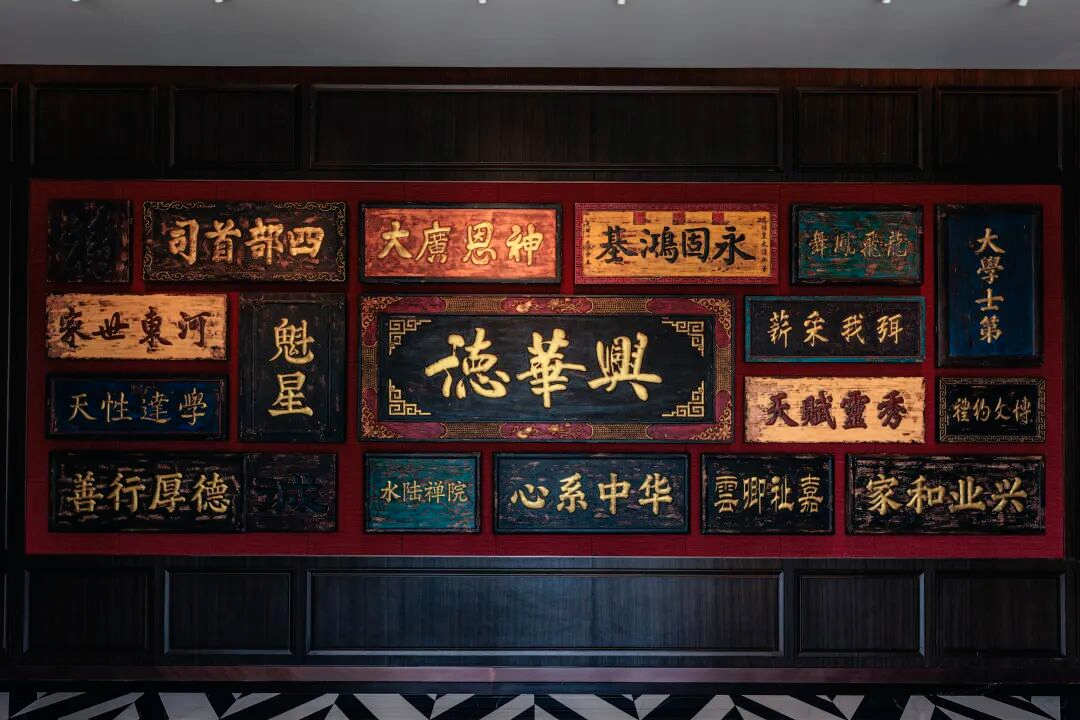 四部首司
神恩廣大
永固鴻基
龍飛鳳舞
大學士第
河東世家
魁星
興華德
學達性天
天賦靈秀
德厚行善
水陆禅院
心系中华
嘉祉卿雲
家和业兴